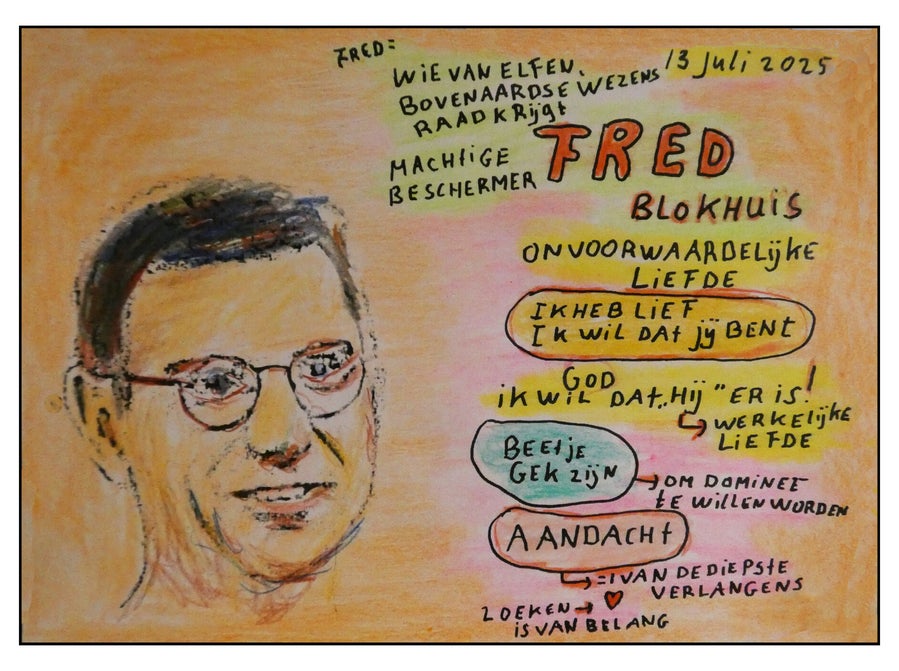 FRED=
WIE VAN ELFEN,
BOVENAARDSE WEZENS
RAAD KRijgt
13 juli 2025
MACHTIGE
BESCHERMER
FRED
BLOKHUIS
ONVOORWAARDELijKE
LIEFDE
IK HEB LIEF
IK WIL DAT jij BENT
GOD
iK WIL DAT „Hij" ER IS!
WERKELijKE
LIEFDE
BEETje
GEK ZijN
OM DOMINEE
TE WILLEN WORDEN
AANDACHT
= 1 VAN DE DIEPSTE
VERLANGENS
ZOEKEN
IS VAN BELANG